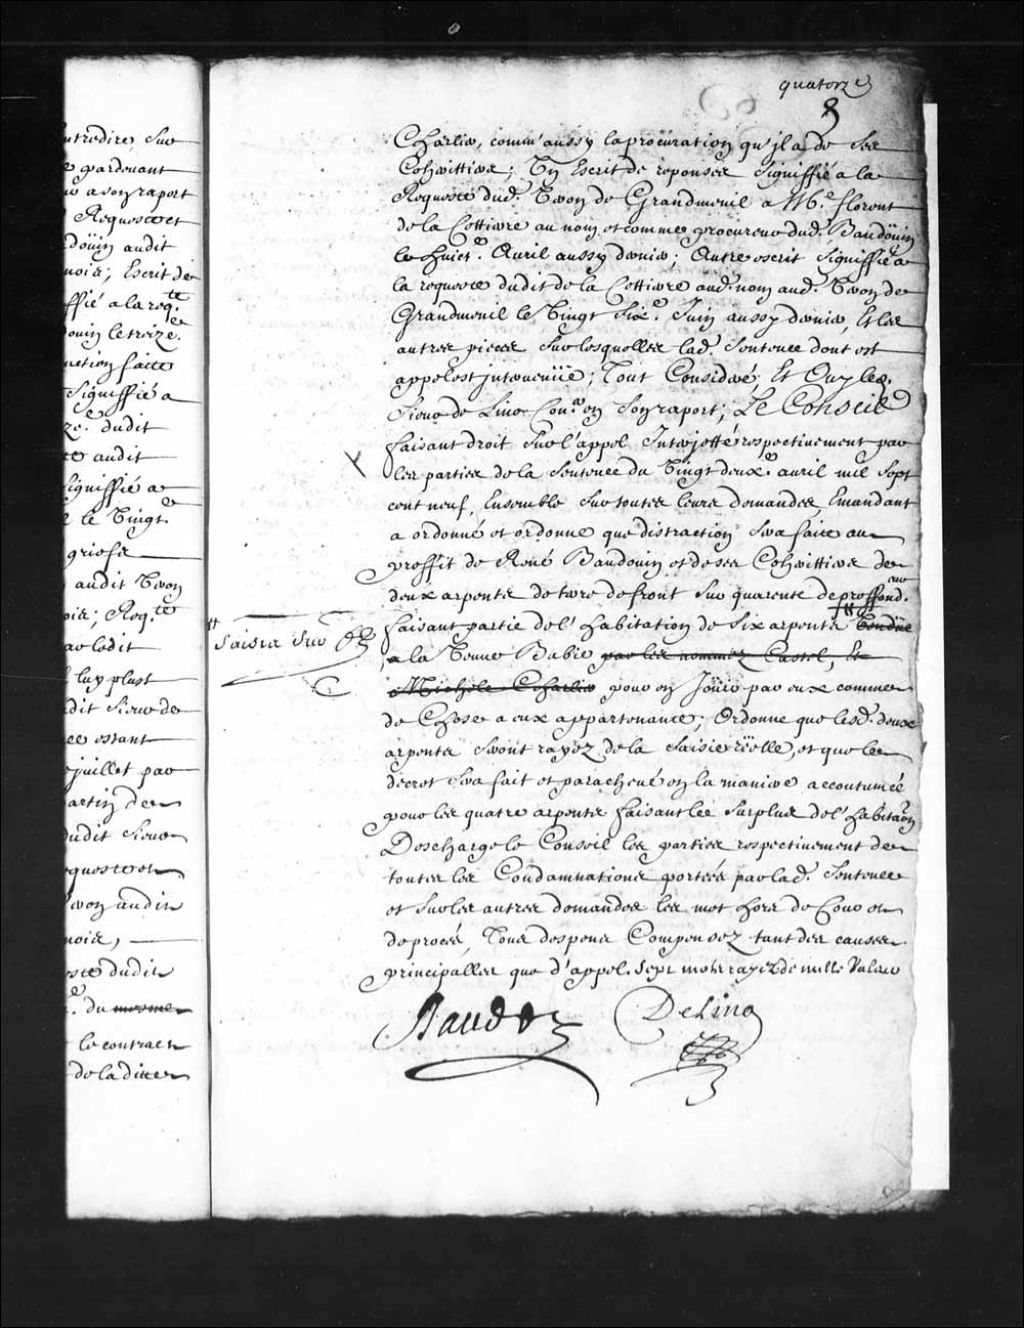 quatorze
8
Charlis, comm' aussy la procuration qu'il a de ses
Cohæritiers; Un Escrit de reponses Signiffié a la
Requeste dud. Veron de Grandmenil a Me. florent
de la Cettiere au nom et comme procureur dud. Baudoüin
le huict. Avril aussy dernier; Autre escrit Signiffié a
la requeste dudit de la Cettiere aud. nom aud. Veron de
Grandmenil le Vingt Sixe. Juin aussy dernier, Et les
autres pieces Sur lesquelles lad. Sentence dont est
appel est jntervenüe; Tout Consideré; Et Ouy le
Sieur de Lino Conr. en Son raport; Le Conseil
faisant droit Sur l'appel Interjetté respectivement par
les parties de la Sentence du Vingt deuxe. avril mil Sept
cent neuf, Ensemble Sur toutes leurs demandes, Emandant
a ordonné et ordonne que distraction Sera faite au
proffit de René Baudouin et de ses Cohæritiers de
deux arpents de terre de front Sur quarente de proffondeur.
faisant partie de l'habitation de Six arpents # vendüe
# Saisis Sur
a la Veuve Babie par les nommez Castel, Et
Michele Charlis pour en Joüir par eux comme
de Chose a eux appartenance; Ordonne que lesd. deux
arpents Seront rayez de la Saisie réelle, et que le
decret Sera fait et parachevé en la maniere accoutumée
pour les quatre arpents faisant le Surplus de l'habitaon
Descharge le Conseil les parties respectivement de
toutes les Condamnations portées par lad. Sentence
et Sur les autres demandes les met hors de Cour et
de procés, Tous despens Compensez tant des causes
principalles que d'appel. Sept mots rayez de nulle Valeur
Vaudreüil
DeLino
ntredire Sur
pardevant
a son raport
Requeste et
doüin audit
nois; Escrit de
ffié a la reqte.
oüin le treize.
uction faite
Signiffié a
ze. dudit
audit
igniffié a
le Vingt
griefs
audit Veron
ois; Reqte.
par ledit
luy plust
dit Sieur de
ce estant
juillet par
artin de
dudit Sieur
queste et
eron audit
nois,
ste dudit
du mesme
le contract
de la ditte